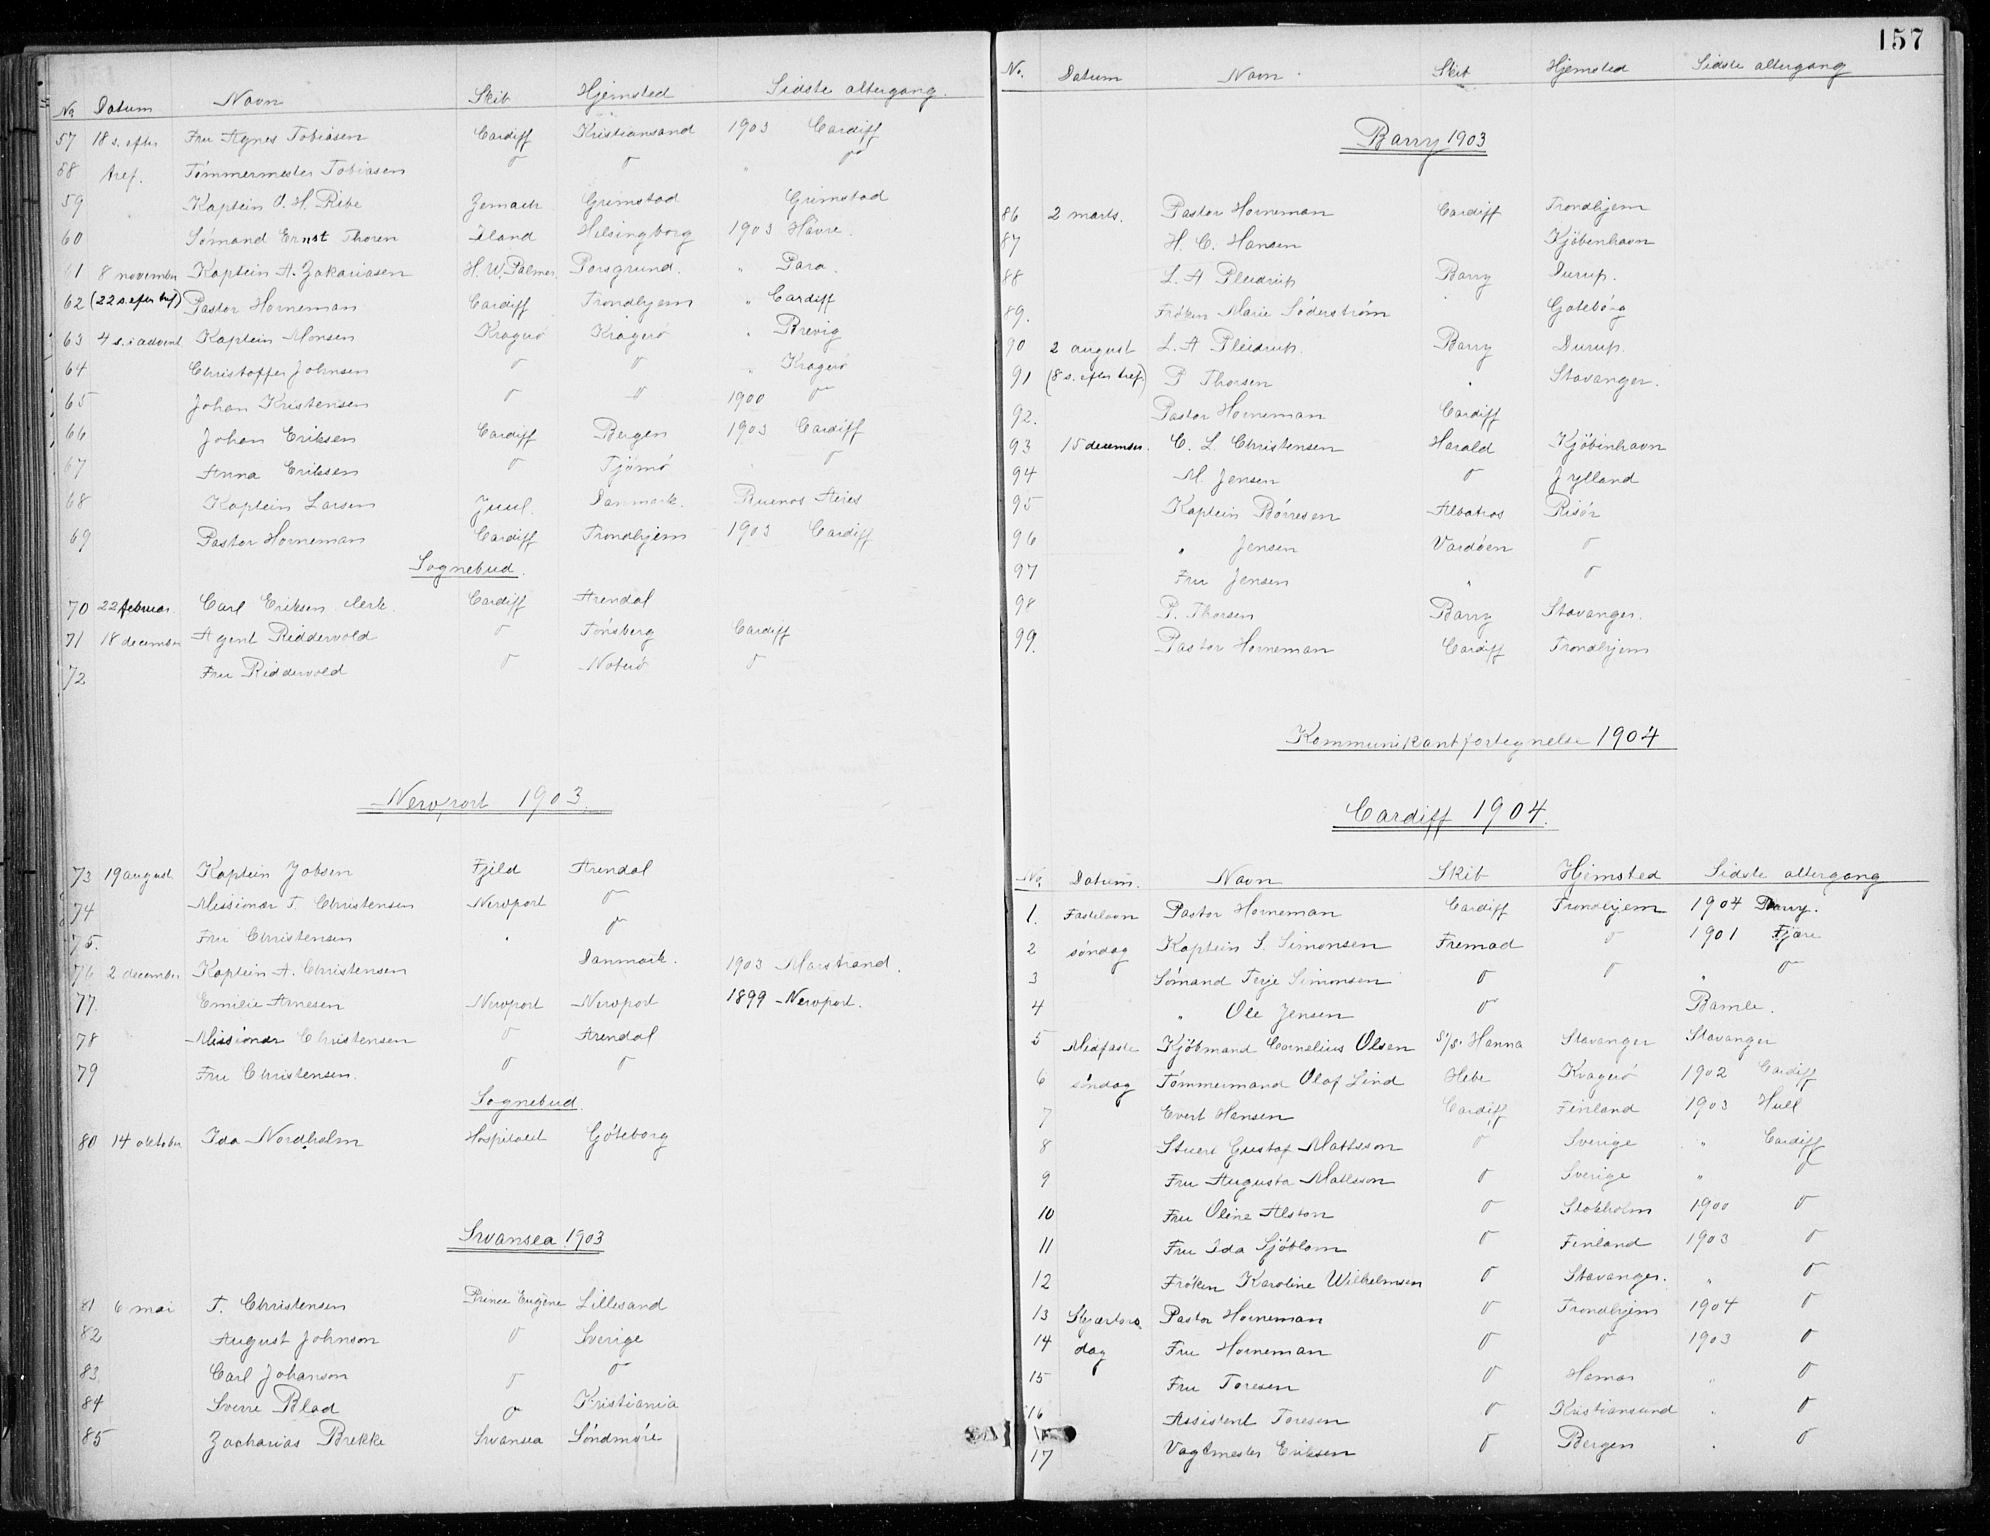 No Datum Navn Skib Hjemsted Sidste altergang.
57 18 s. efter Fru Agnes Tobiasen Cardiff Kristiansand 1903 Cardiff
58 tref. Tømmermester Tobiasen
59 Kaptein O. H. Ribe Grimstad Grimstad
60 Sømand Ernst Thoren Iland Helsingborg 1903 Havre.
61 8 november Kaptein A. Zakariasen H. W. Palmer Porsgrund. " Para.
62 (22 s. efter tref) Pastor Horneman Cardiff Trondhjem " Cardiff
63 4 s. i advent Kaptein Monsen Kragerø Kragerø " Brevig
64 Christoffer Johnsen " Kragerø
65 Johan Kristensen 1900
66 Johan Eriksen Cardiff Bergen 1903 Cardiff
67 Anna Eriksen Tjømø
68 Kaptein Larsen Juul. Danmark. Buenos Aires
69 Pastor Horneman Cardiff Trondhjem 1903 Cardiff
Sognebud.
70 22 februar. Carl Eriksen clerk. Cardiff Arendal
71 18 december Agent Riddervold Tønsberg Cardiff
72 Fru Riddervold Noterø
Newport 1903.
73 19 august Kaptein Jobsen Fjeld Arendal
74 Missionær T. Christensen Newport
75. Fru Christensen "
76 2 december Kaptein A. Christensen Danmark. 1903 Marstrand.
77. Emilie Arnesen Newport Newport 1899 Newport.
78 Missionær Christensen Arendal
79 Fru Christensen.
Sognebud
80 14 oktober Ida Nordholm Hospitalet Gøteborg
Swansea 1903
81 6 mai T. Christensen Prince Eugène Lillesand
82 August Johnson Sverige
83. Carl Johanson
84 Sverre Blad Kristiania
85 Zacharias Brekke Swansea Søndmøre
157
No. Datum Navn Skib Hjemsted Sidste altergang
Barry 1903
86 2 marts. Pastor Horneman Cardiff Trondhjem
87 H. C. Hansen Kjøbenhavn
88 L. A Pleidrup Barry Durup.
89. Frøken Marie Söderström " Gøteborg
90 2 august L. A Pleidrup. Barry Durup.
91 (8 s. efter tref.) P Thorsen " Stavanger.
92. Pastor Horneman Cardiff
93 15 december. C. L. Christensen Harald Kjøbinhavn
94 M. Jensen Jylland
95 Kaptein Børresen Albatros Risør
96 " Jensen Vardøen
97 Fru Jensen "
98 P. Thorsen Barry Stavanger.
99. Pastor Horneman Cardiff Trondhjem
Kommunikantfortegnelse 1904
Cardiff 1904.
No. Datum. Navn Skib Hjemsted Sidste altergang
1. Fastelavn Pastor Horneman Cardiff Trondhjem 1904 Barry.
2 søndag Kaptein S. Simonsen Fremad 1901 Fjære
3 Sømand Terje Simonsen "
4 " Ole Jensen Bamle.
5 Midfaste Kjøbmand Cornelius Olsen S/S. Hanna Stavanger Stavanger
6 søndag Tømmermand Olaf Lind Hebe Kragerø 1902 Cardiff
7 Evert Hansen Cardiff Finland 1903 Hull
8 Stuert Gustaf Mattsson Sverige " Cardiff
9 Fru Augusta Mattsson Sverige "
10 Fru Oline Alston Stokholm 1900
11 Fru Ida Sjöblom Finland 1903
12 Frøken Karoline Wilhelmsen Stavanger. "
13 Skjærtors Pastor Horneman Trondhjem 1904
14 dag Fru Horneman 1903
15 Fru Toresen Hamar "
16 Assistent Toresen Kristiansund "
17 Vagtmester Eriksen Bergen "